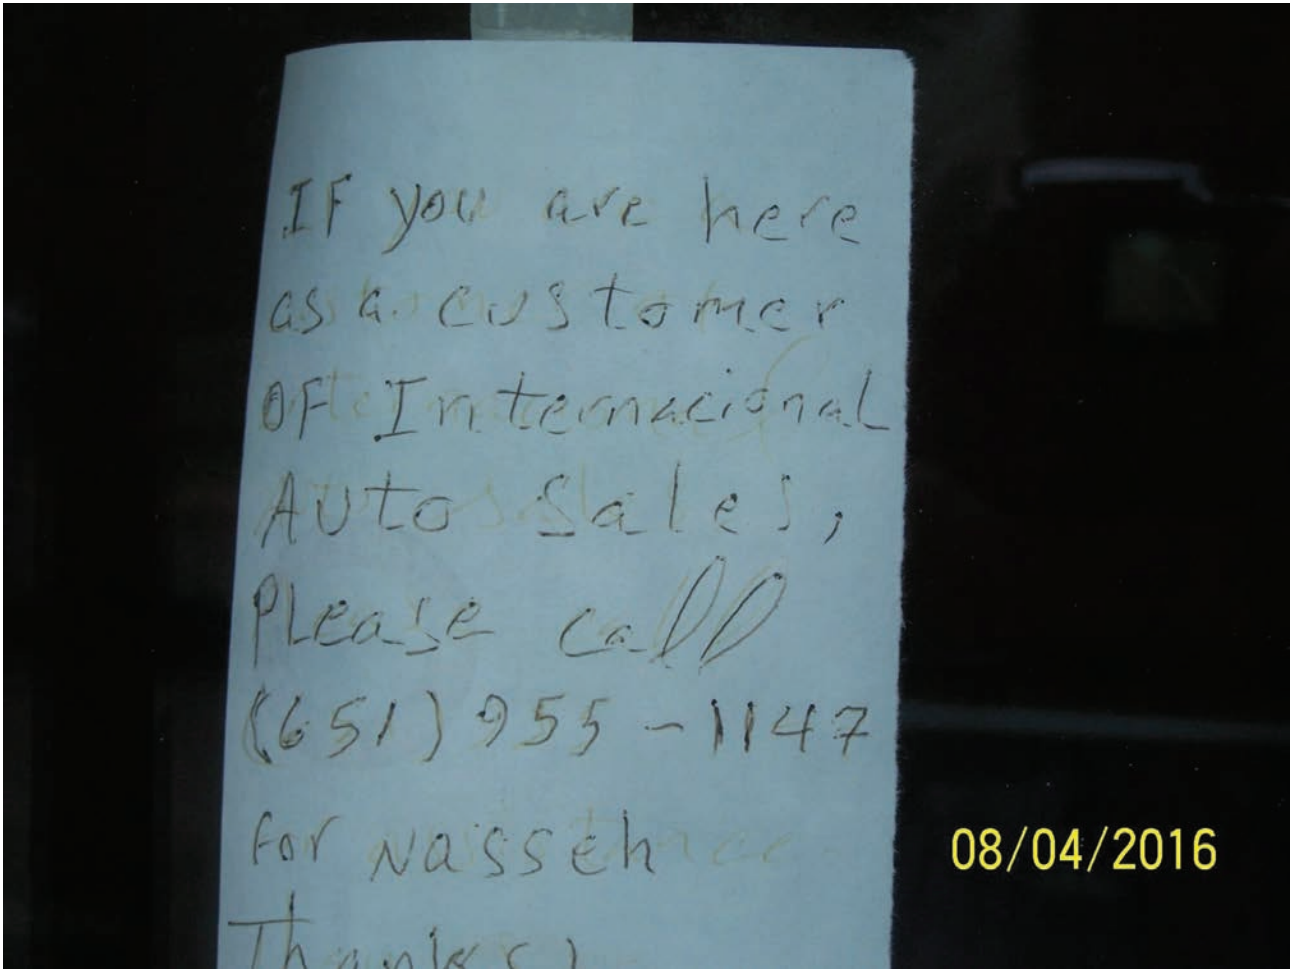 IF you are here
as a customer
OF Internacional
Auto Sales,
PLease call
(651) 955-1147
for Nasseh
Thanks!
08/04/2016